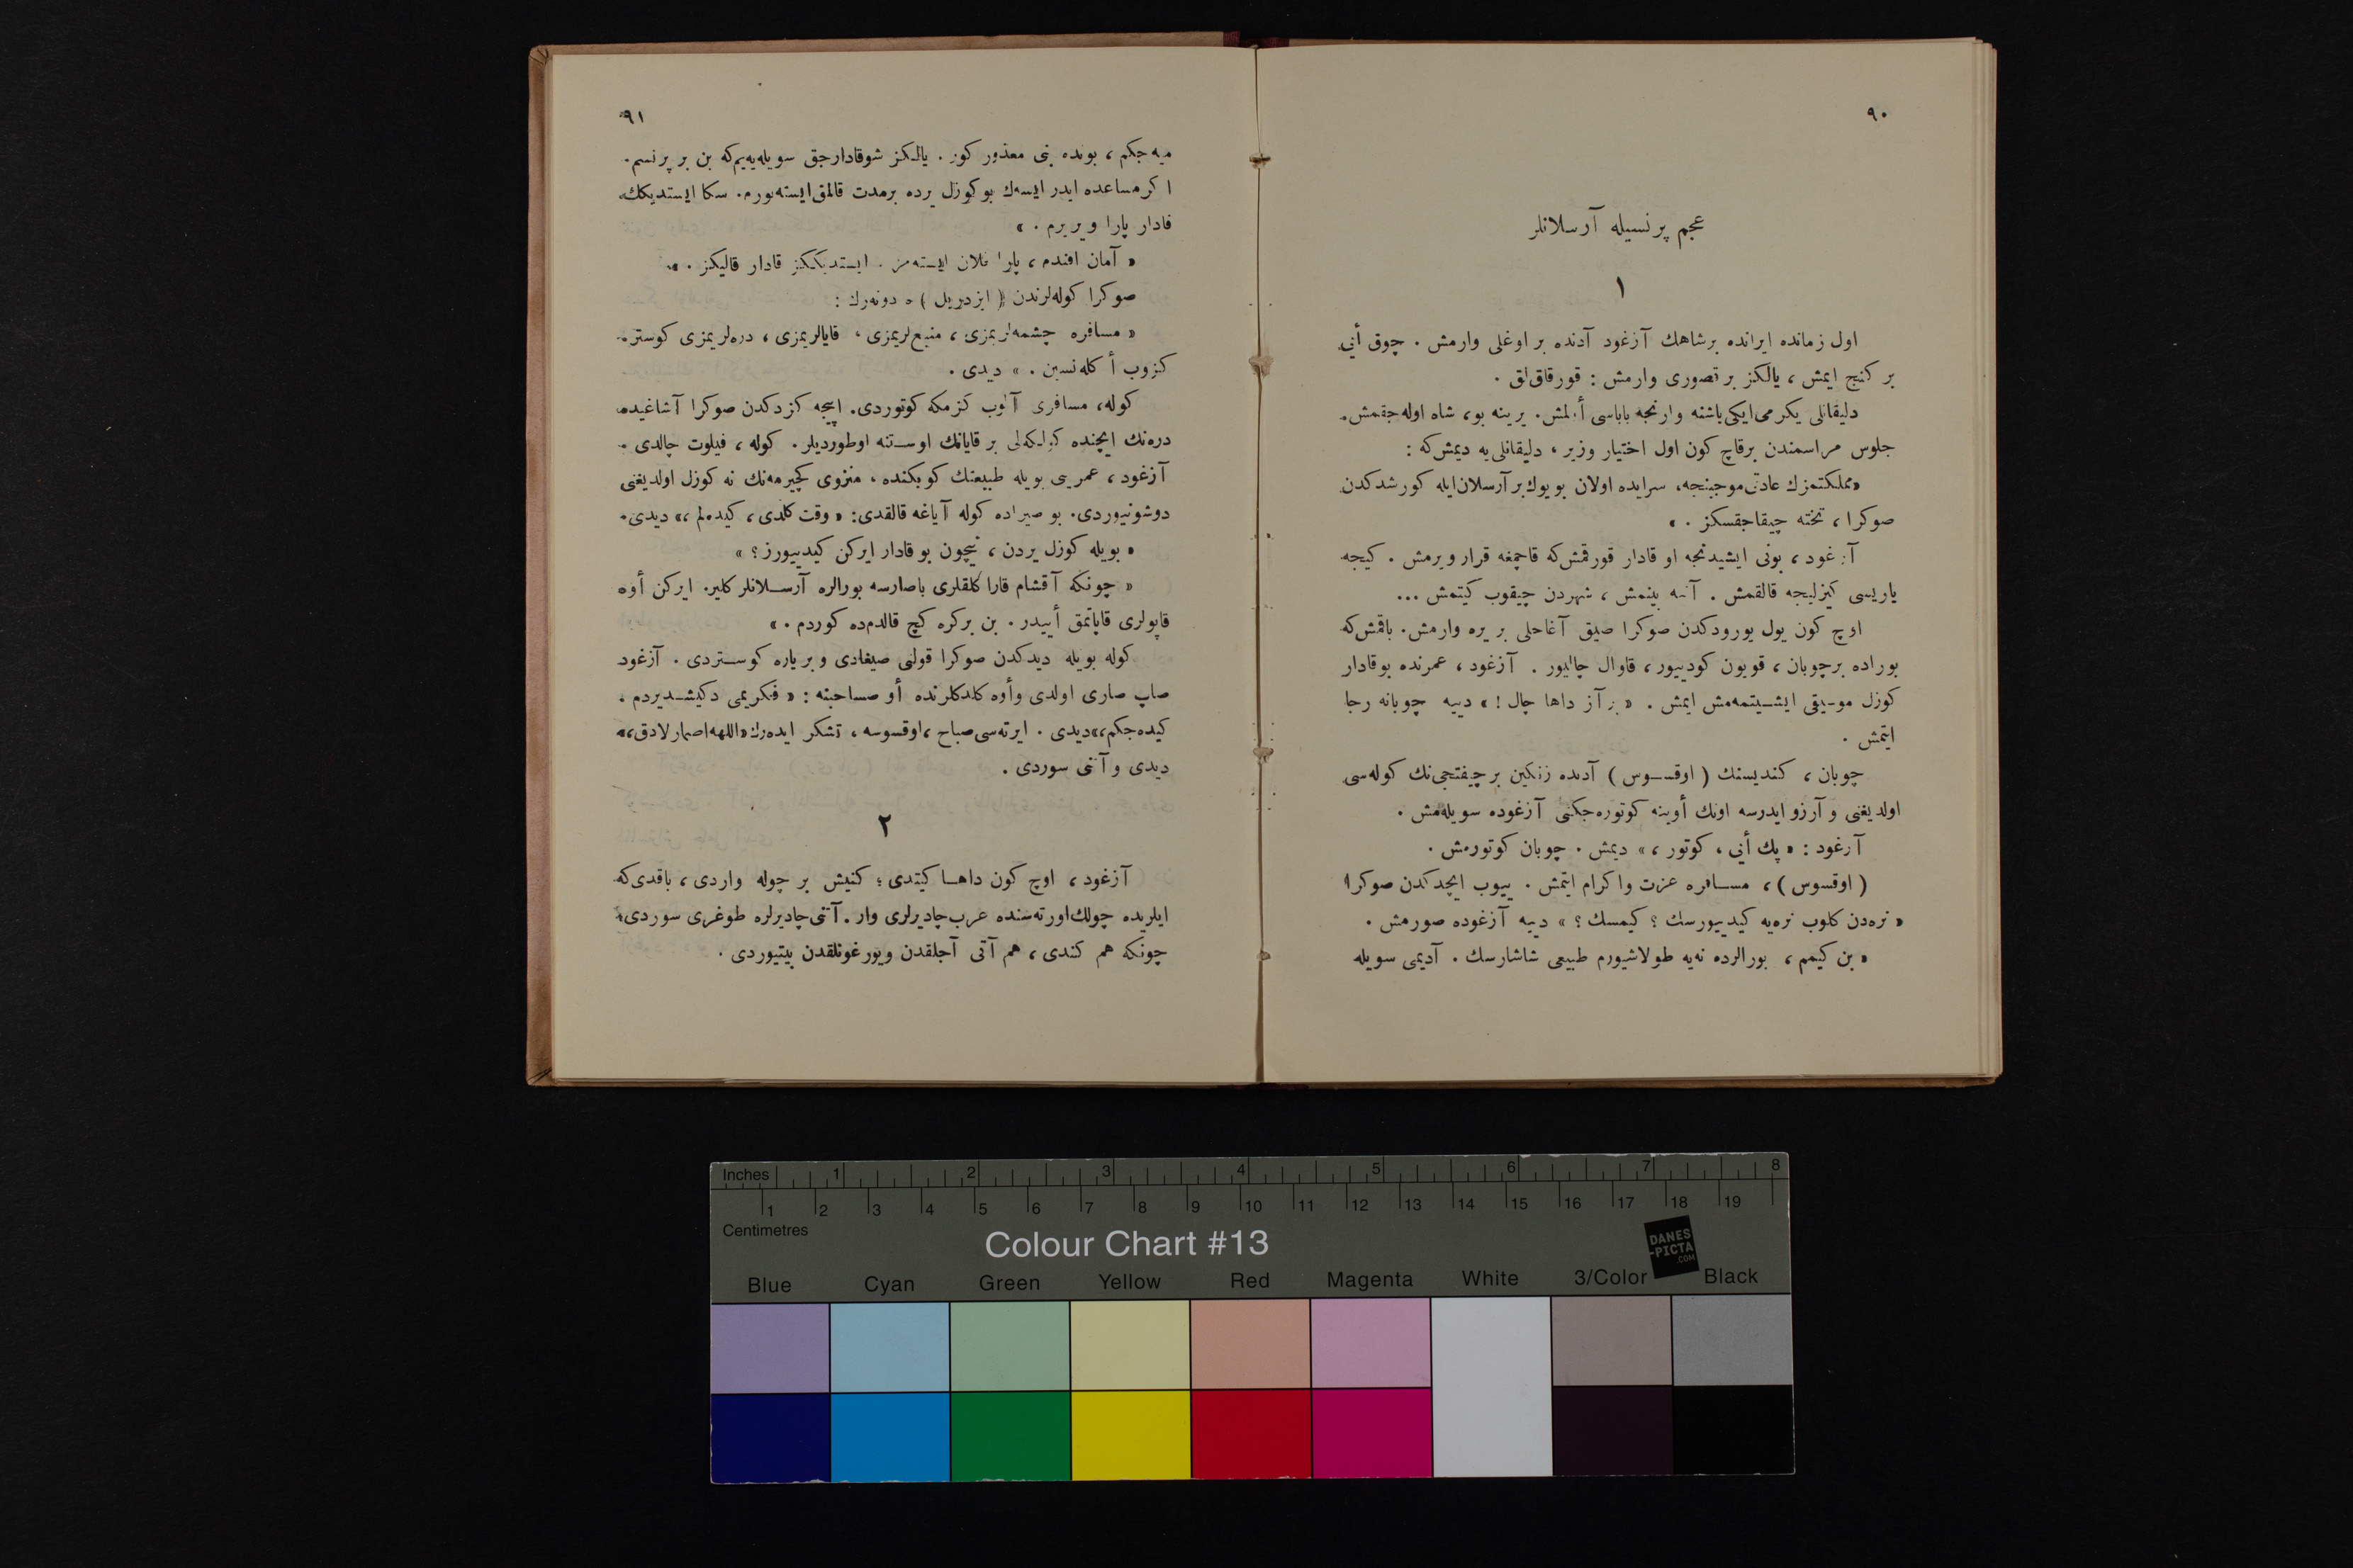 ٩٠
عجم پرنسيله آرسلانلر
١
اول زمانده ايرانده برشاهك آزغود آدنده بر اوغلى وارمش . چوق أيى
بر كنج ايمش ، يالكز بر قصورى وارمش : قورقاق‌لق .
دليقانلى يكرمى‌ايكى‌ياشنه وارنجه باباسى أولمش. يرينه بو، شاه اوله‌جقمش.
جلوس مراسمندن برقاچ كون اول اختيار وزير ، دليقانلى‌يه ديمش‌كه :
«مملكتمزك عادتى‌موجبنجه، سرايده اولان بويوك‌برآرسلان‌ايله كورشدكدن
صوكرا ، تخته چيقاجقسكز . »
آزغود ، بونى ايشيدنجه او قادار قورقمش‌كه قاچمغه قرار ويرمش . كيجه
ياريسى كيزليجه قالقمش . آتنه بينمش ، شهردن چيقوب كيتمش ...
اوچ كون يول يورودكدن صوكرا صيق آغاجلى بر يره وارمش. باقمش‌كه
بوراده برچوبان ، قويون كودييور ، قاوال چاليور . آزغود ، عمرنده بوقادار
كوزل موسيقى ايشـيتمه‌مش ايمش . « بر آز داها چال ! » دييه چوبانه رجا
ايتمش .
چوبان ، كنديسنك ( اوقسـوس ) آدنده زنكين برچيفتجى‌نك كوله‌سى
اولديغنى و آرزو ايدرسه اونك أوينه كوتوره‌جكنى آزغوده سويله‌مش .
آزغود : « پك أيى ، كوتور ، » ديمش . چوبان كوتورمش .
( اوقسوس ) ، مسـافره عزت واكرام ايتمش . ييوب ايچدكدن صوكرا
« نره‌دن كلوب نره‌يه كيدييورسك ؟ كيمسك ؟ » دييه آزغوده صورمش .
« بن كيمم ، بورالرده نه‌يه طولاشيورم طبيعى شاشارسك . آديمى سويله
٩١
ميه‌جكم ، بونده بنى معذور كور . يالكز شوقادارجق سويله‌يه‌يم‌كه بن بر پرنسم.
اكر مساعده ايدر ايسه‌ك بوكوزل يرده برمدت قالمق‌ايسته‌يورم. سكا ايستديكك
قادار پارا ويريرم . »
« آمان افندم ، پارا فلان ايسته‌مز . ايستديككز قادار قاليكز . »
صوكرا كوله‌لرندن ( ايزدريل ) ه دونه‌رك :
« مسافره چشمه‌لريمزى ، منبع‌لريمزى ، قايالريمزى ، دره‌لريمزى كوستر.
كزوب أكله‌نسين . » ديدى .
كوله، مسافرى آلوب كزمكه كوتوردى. اييجه كزدكدن صوكرا آشاغيده
دره‌نك ايچنده كولكه‌لى بر قايانك اوسـتنه اوطورديلر. كوله ، فيلوت چالدى .
آزغود ، عمرينى بويله طبيعتك كوبكنده ، منزوى كچيرمه‌نك نه كوزل اولديغنى
دوشونيوردى. بو صيراده كوله آياغه قالقدى: « وقت كلدى ، كيده‌لم ،» ديدى.
« بويله كوزل يردن ، نيچون بو قادار ايركن كيدييورز ؟ »
« چونكه آقشام قارا كلقلرى باصارسه بورالره آرسـلانلر كلير. ايركن أوه
قاپولرى قاپاتمق أييدر . بن بركره كچ قالدم‌ده كوردم . »
كوله بويله ديدكدن صوكرا قولنى صيغادى و بر ياره كوسـتردى . آزغود
صاپ صارى اولدى وأوه كلدكلرنده أو صـاحبنه : « فكريمى دكيشـديردم .
كيده‌جكم،» ديدى . ايرته‌سى صباح ، اوقسوسه ، تشكر ايده‌رك «اللهه‌اصمارلادق،»
ديدى و آتنى سوردى .
٢
آزغود ، اوچ كون داهـا كيتدى ؛ كنيش بر چوله واردى ، باقدى‌كه
ايلريده چولك‌اورته‌سنده عرب‌چاديرلرى وار . آتنى‌چاديرلره طوغرى سوردى؛
چونكه هم كندى ، هم آتى آجلقدن ويورغونلقدن بيتيوردى .
Inches 1 2 3 4 5 6 7 8
1 2 3 4 5 6 7 8 9 10 11 12 13 14 15 16 17 18 19
Centimetres
Colour Chart #13
DANES
-PICTA
.COM
Blue Cyan Green Yellow Red Magenta White 3/Color Black